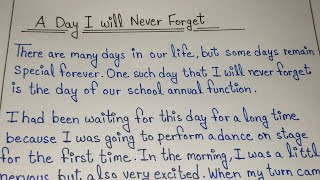 A Day I will Never Forget
There are many days in our life, but some days remain
Special forever. One such day that I will never forget
is the day of our school annual function.
I had been waiting for this day for a long time
because I was going to perform a dance on stage
for the first time. In the morning, I was a little
nervous but also very excited. When my turn cam